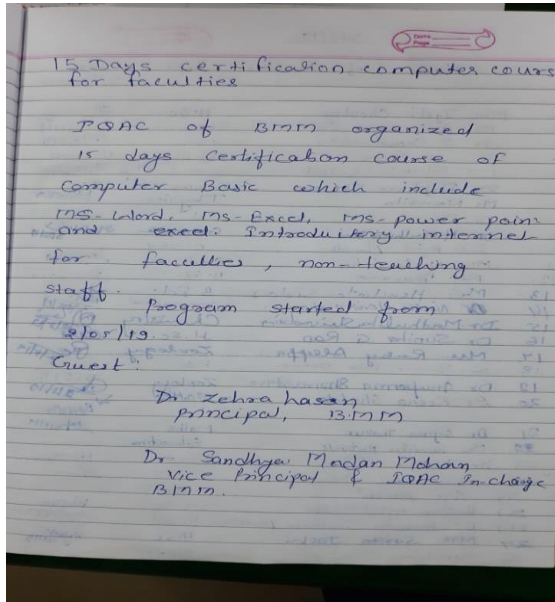 Date
Page
15 Days certification computer cours
for faculties
IQAC of BMM organized
15 days certification course of
computer Basic which include
ms-Word, ms-Excel, ms-power poin
and excel. Introductory internet
for faculties, non-teaching
staff.
Program started from
2/05/19.
Guest:
Dr. Zehra hasan
principal, BMM
Dr Sandhya Madan Mohan
Vice Principal & IQAC In-charge
BMM.